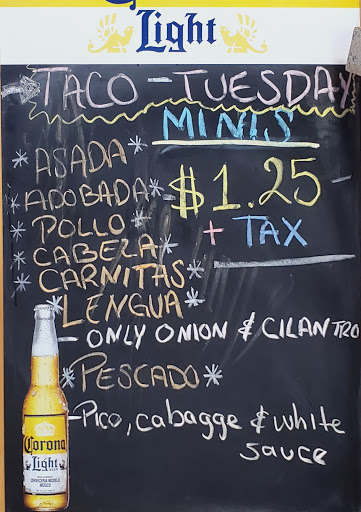 Light
TACO - TUESDAY
MINIS
*ASADA*
*ADOBADA*
$1.25
*POLLO*
+ TAX
*CABEZA*
*CARNITAS*
*LENGUA*
- ONLY ONION & CILANTRO
*PESCADO*
- Pico, cabagge & white
sauce
Corona
Light
CERVECERIA MODELO
MEXICO